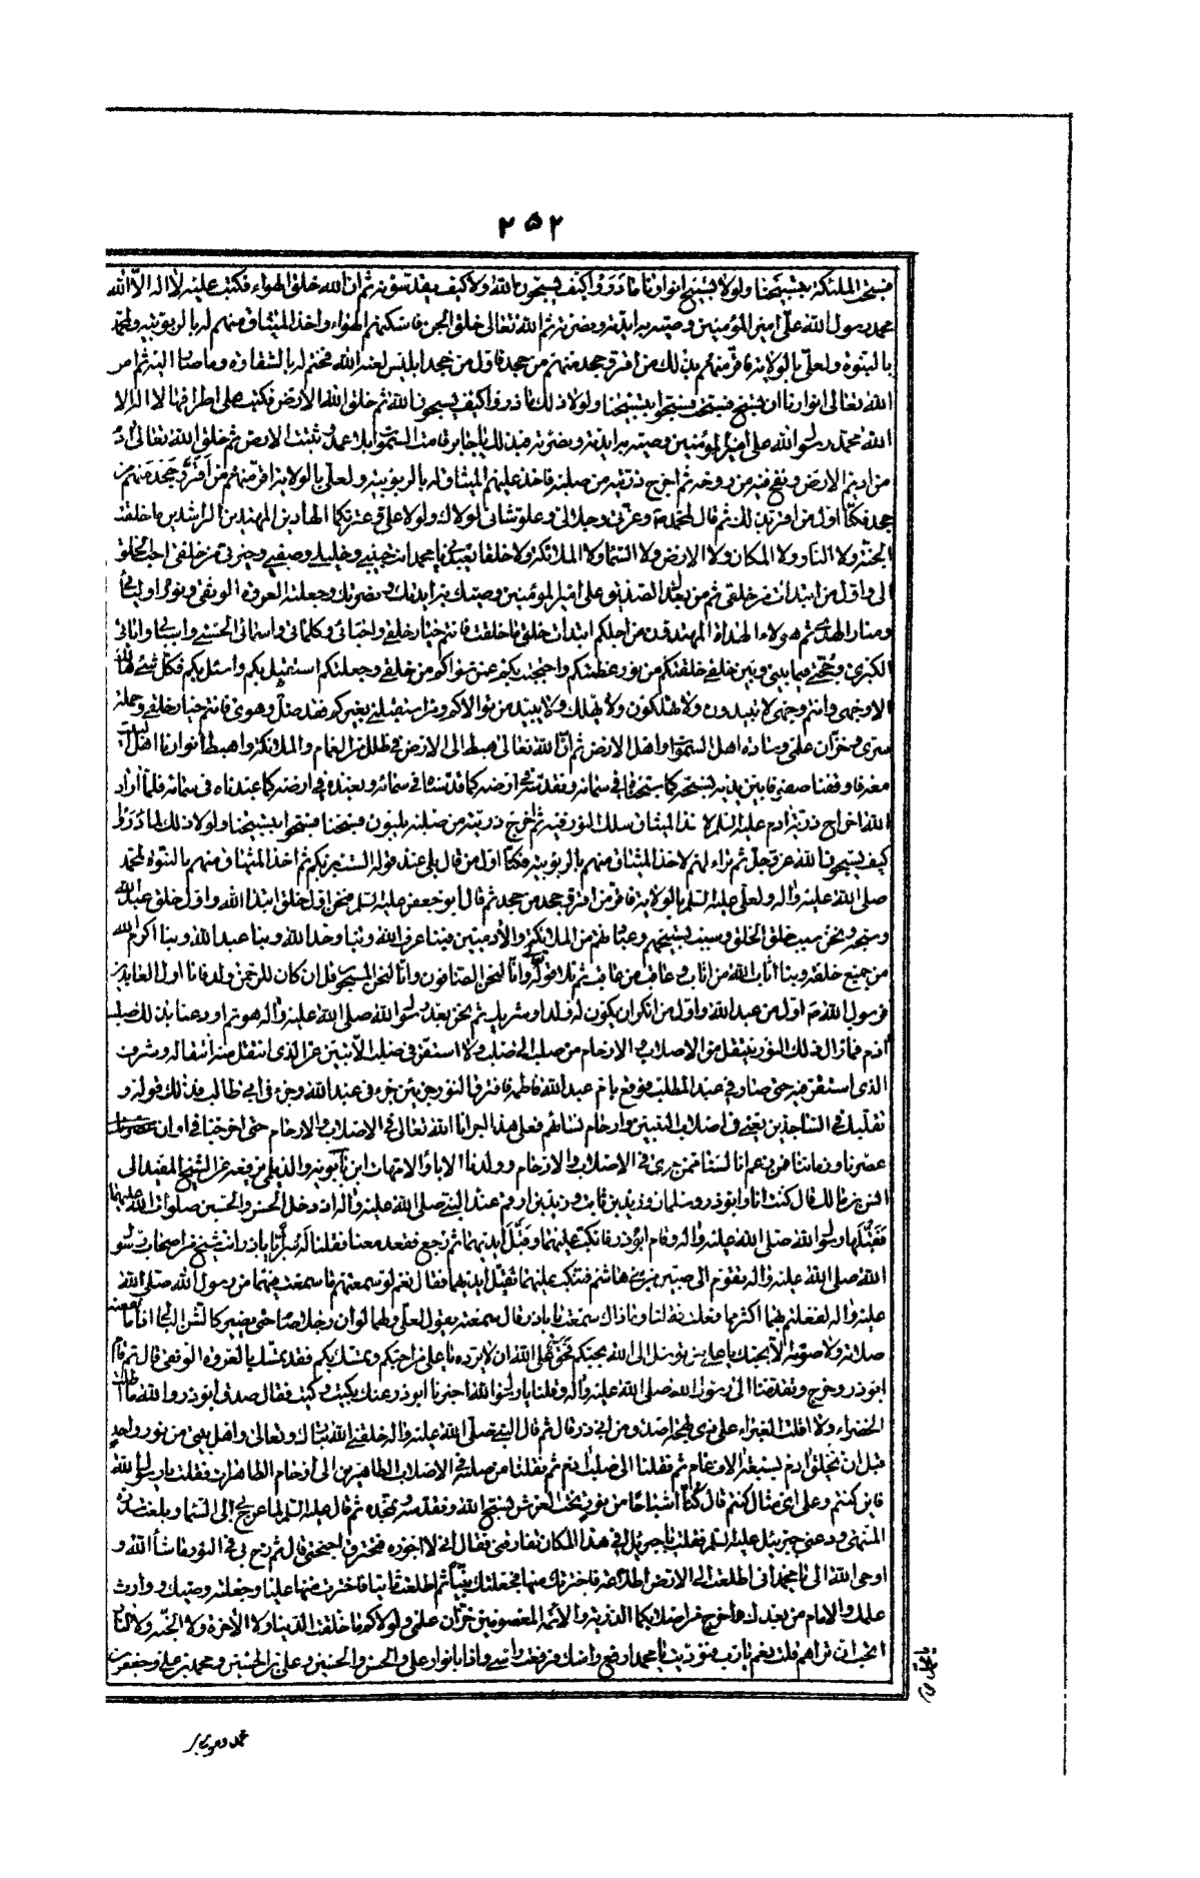 ٢٥٢
فسبحت الملئكة بتسبيحنا ولولا تسبيح انوارنا ما دروا كيف يسبحون الله ولا كيف يقدسونه ثم ان الله خلق الهواء فكتب عليه لا اله الا الله
محمد رسول الله على امير المؤمنين وصيه به ايدته ونصرته ثم الله تعالى خلق الجن فاسكنهم الهواء واخذ الميثاق منهم له بالربوبيه ولمحمد
بالنبوة ولعلى بالولاية فاقر منهم بذلك من اقر وجحد منهم من جحد فاول من جحد ابليس لعنه الله فختم له بالشقاوة وما صار اليه ثم امر
الله تعالى انوارنا ان تسبح فسبحت فسبحوا بتسبيحنا ولولا ذلك ما دروا كيف يسبحون الله ثم خلق الله الارض فكتب على اطرافها لا اله الا
الله محمد رسول الله على امير المؤمنين وصيه به ايدته ونصرته فبذلك يا جابر قامت السموات بلا عمد وثبتت الارض ثم خلق الله تعالى ادم
من اديم الارض ونفخ فيه من روحه ثم اخرج ذريته من صلبه فاخذ عليهم الميثاق له بالربوبيه ولعلى بالولاية اقر منهم من اقر وجحد منهم من
جحد فكنا اول من اقر بذلك ثم قال لمحمد وعزتى وجلالى وعلو شانى لولاك ولولا على وعترتكما الهادين المهديين الراشدين ما خلقت
الجنة ولا النار ولا المكان ولا الارض ولا السماء ولا الملائكة ولا خلقا يعبدنى يا محمد انت حبيبى وخليلى وصفيى وخيرتى من خلقى احب الخلق
الى واول من ابتدات من خلقى ثم من بعدك الصديق على امير المؤمنين وصيك به ايدتك ونصرتك وجعلته العروة الوثقى ونور اوليائى
ومنار الهدى ثم هولاء الهداة المهتدون من اجلكم ابتدات خلق ما خلقت فانتم خيار خلقى واحبائى وكلماتى واسمائى الحسنى واسبابى واياتى
الكبرى وحجتى فيما بينى وبين خلقى خلقتكم من نور عظمتكم واحتجبت بكم عن من سواكم من خلقى وجعلتكم استقبل بكم واسئل بكم فكل شىء هالك
الا وجهى وانتم وجهى لا تبيدون ولا تهلكون ولا يهلك ولا يبيد من توالاكم ومن استقبلنى بغيركم فقد ضل وهوى فانتم خيار خلقى وحملة
سرى وخزان علمى وسادة اهل السموات واهل الارض ثم ان الله تعالى هبط الى الارض فى ظلل من الغمام والملائكة واهبط انوارنا اهل البيت
معه فاوقفنا صفوفا بين يديه نسبحه كما سبحناه فى سمائه ونقدسه فى ارضه كما قدسناه فى سمائه ونعبده فى ارضه كما عبدناه فى سمائه فلما اراد
الله اخراج ذرية ادم عليه السلام لاخذ الميثاق سلك النور فيه ثم اخرج ذريته من صلبه يلبون فسبحنا فسبحوا بتسبيحنا ولولا ذلك لما دروا
كيف يسبحون الله عز وجل ثم تراءى لهم لاخذ الميثاق منهم بالربوبيه فكنا اول من قال بلى عند قوله الست بربكم ثم اخذ الميثاق منهم بالنبوة لمحمد
صلى الله عليه واله ولعلى عليه السلم بالولاية فاقر من اقر وجحد من جحد ثم قال ابو جعفر عليه السلم فنحن اول خلق ابتدا الله واول خلق عبد الله
وسبحه ونحن سبب خلق الخلق وسبب تسبيحهم وعبادتهم من الملائكة والآدميين فبنا عرف الله وبنا وحد الله وبنا عبد الله وبنا اكرم الله
من جميع خلقه وبنا اثاب الله من اثاب وعاقب من عاقب ثم تلا قوله وانا لنحن الصافون وانا لنحن المسبحون قل ان كان للرحمن ولد فانا اول العابدين
فرسول الله اول من عبد الله واول من انكر ان يكون له ولد او شريك ثم نحن بعد رسول الله صلى الله عليه واله هو ثم اودعنا بذلك صلب
ادم فما زال ذلك النور ينتقل من الاصلاب والارحام من صلب الى صلب ولا استقر فى صلب الا تبين عن الذى انتقل منه انتقاله وشرف
الذى استقر فيه حتى صار فى عبد المطلب فوقع بام عبد الله فاطمه فافترق النور جزئين جزء فى عبد الله وجزء فى ابى طالب فذلك قوله و
تقلبك فى الساجدين يعنى فى اصلاب النبيين وارحام نسائهم فعلى هذا اجرانا الله تعالى فى الاصلاب والارحام حتى اخرجنا فى اوان
عصرنا وزماننا فمن زعم انا لسنا ممن جرى فى الاصلاب والارحام وولدنا الاباء والامهات ابن بابويه والديلمى يرفعه عن الشيخ المفيد الى
انس بن مالك قال كنت انا وابوذر وسلمان وزيد بن ثابت وزيد بن ارقم عند النبى صلى الله عليه واله اذ دخل الحسن والحسين صلوات الله عليهما
فقبلهما رسول الله صلى الله عليه واله وقام ابوذر فانكب عليهما وقبل ايديهما ثم رجع فقعد معنا فقلنا له سرا يا باذر انت شيخ من اصحاب رسول
الله صلى الله عليه واله تقوم الى صبيين من بنى هاشم فتنكب عليهما فتقبل ايديهما فقال نعم لو سمعتم ما سمعت فيهما من رسول الله صلى الله
عليه واله لفعلتم بهما اكثر مما فعلت فقلنا وما ذاك سمعت يا باذر قال سمعته يقول لعلى ولهما لو ان رجلا صام حتى يصير كالشن البالى اذا ما نفعته
صلاته ولا صومه الا بحبك يا على من توسل الى الله بحبكم فحق على الله ان لا يرده يا على من احبكم وتمسك بكم فقد تمسك بالعروة الوثقى قال ثم قام
ابوذر وخرج وتقدمنا الى رسول الله صلى الله عليه واله وقلنا يا رسول الله اخبرنا ابوذر عنك بكيت وكيت فقال صدق ابوذر والله ما اظلت
الخضراء ولا اقلت الغبراء على ذى لهجة اصدق من ابى ذر قال ثم قال النبى صلى الله عليه واله خلقنى الله تبارك وتعالى واهل بيتى من نور واحد
قبل ان يخلق ادم بسبعة الاف عام ثم نقلنا الى صلب ادم ثم نقلنا من صلبه فى الاصلاب الطاهرين الى ارحام الطاهرات فقلت يا رسول الله
فاين كنتم وعلى اى مثال كنتم قال كنا اشباحا من نور تحت العرش نسبح الله ونقدسه ونمجده ثم قال عليه السلم لما عرج بى الى السماء وبلغت سدرة
المنتهى ودعنى جبرئيل عليه السلم فقلت يا جبرئيل فى هذا المكان تفارقنى فقال انى لا اجوزه فتحترق اجنحتى قال ثم زج بى فى النور ما شاء الله و
اوحى الله الى يا محمد انى اطلعت الى الارض اطلاعة فاخترتك منها فجعلتك نبيا ثم اطلعت ثانيا فاخترت منها عليا وجعلته وصيك ووارث
علمك والامام من بعدك واخرج من اصلابكما الذرية والائمة المعصومين خزان علمى ولولاكم ما خلقت الدنيا ولا الآخرة ولا الجنة ولا النار
اتحب ان تراهم قلت نعم يارب فنوديت يا محمد ارفع راسك فرفعت راسى واذا بانوار على والحسن والحسين وعلى بن الحسين ومحمد بن على وجعفر بن
محمد وموسى بن